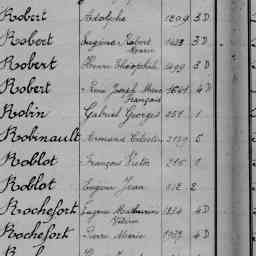 Robert Adolphe 1204 3 D
Robert Eugène Robert 1433 3 D
Marie
Robert Henri Théophile 1499 3 D
Robert René Joseph Marie 1641 4 D
François
Robin Gabriel Georges 251 1
Robinault Armand Célestin 2179 5
Roblot François Victor 216 1
Roblot Eugène Jean 812 2
Rochefort Eugène Mathurin 1834 4 D
Rochefort Pierre Marie 1989 4 D